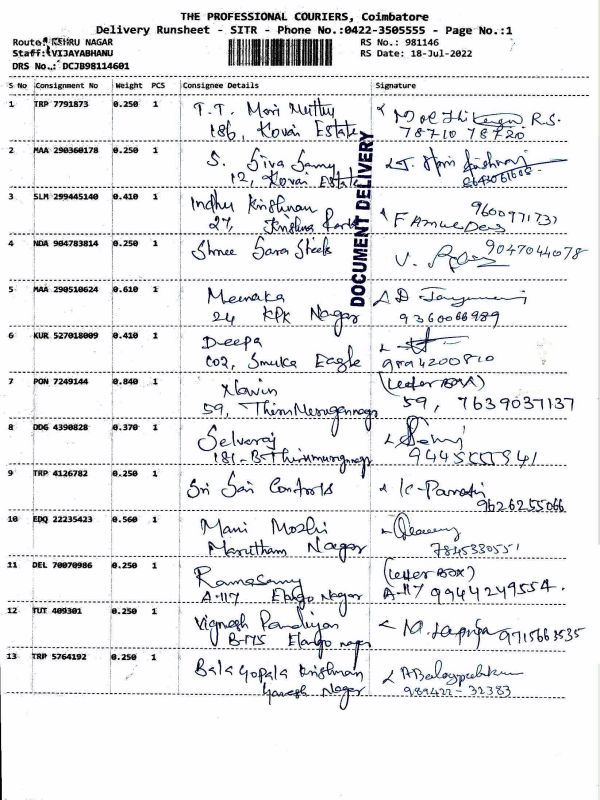 THE PROFESSIONAL COURIERS, Coimbatore
Delivery Runsheet - SITR - Phone No.:0422-3505555 - Page No.:1
Route: NEHRU NAGAR
Staff: VIJAYABHANU
DRS No.: DCJB98114601
RS No.: 981146
RS Date: 18-Jul-2022
S No Consignment No Weight PCS Consignee Details Signature
1 TRP 7791873 0.250 1 T.T. Mari Muthu R.S.
186, Kovai Estate 78710 78720
2 MAA 290360178 0.250 1 S. Siva Samy
12, Kovai Estate
3 SLM 299445140 0.410 1 Indhu Krishnan 9600771731
27, Krishna
4 NDA 904783814 0.250 1 Shree Sara Steels V. 9047044078
5 MAA 290510624 0.610 1 Meenaka A D
24 KPK Nagar 9360066989
6 KUR 527018009 0.410 1 Deepa
C02, Smuka Eagle 9894200810
7 PON 7249144 0.840 1 Navin (Letter BOX)
59, Thirumurugannagar 59, 7639037137
8 DDG 4390828 0.370 1 Selvaraj
181-B-Thirumurugnagar 9445555941
9 TRP 4126782 0.250 1 Sri Sai Controls K-
9626255066
10 EDQ 22235423 0.560 1 Mani Mozhi
Marutham Nagar 7845330551
11 DEL 70070986 0.250 1 Ramasamy (Letter BOX)
A-117 Elango Nagar A-117 9944249554.
12 TUT 409301 0.250 1 Vignesh Pandiyan M. 9715663535
B-175 Elango nagar
13 TRP 5764192 0.250 1 Bala Gopala Krishnan
Ganesh Nagar 989422-32383
DOCUMENT DELIVERY